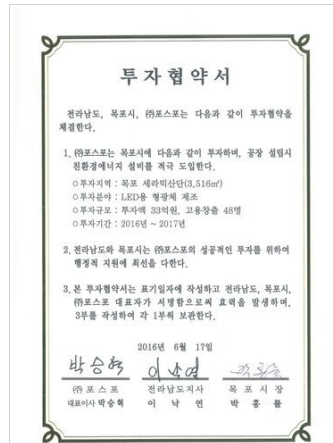 투자협약서
전라남도, 목포시, ㈜포스포는 다음과 같이 투자협약을
체결한다.
1. ㈜포스포는 목포시에 다음과 같이 투자하며, 공장 설립시
친환경에너지 설비를 적극 도입한다.
○투자지역 : 목포 세라믹산단(3,516㎡)
○투자분야 : LED용 형광체 제조
○투자규모 : 투자액 33억원, 고용창출 48명
○투자기간 : 2016년 ~ 2017년
2. 전라남도와 목포시는 ㈜포스포의 성공적인 투자를 위하여
행정적 지원에 최선을 다한다.
3. 본 투자협약서는 표기일자에 작성하고 전라남도, 목포시,
㈜포스포 대표자가 서명함으로써 효력을 발생하며,
3부를 작성하여 각 1부씩 보관한다.
2016년 6월 17일
박승혁 이낙연
㈜포스포 전라남도지사 목포시장
대표이사 박승혁 이낙연 박홍률